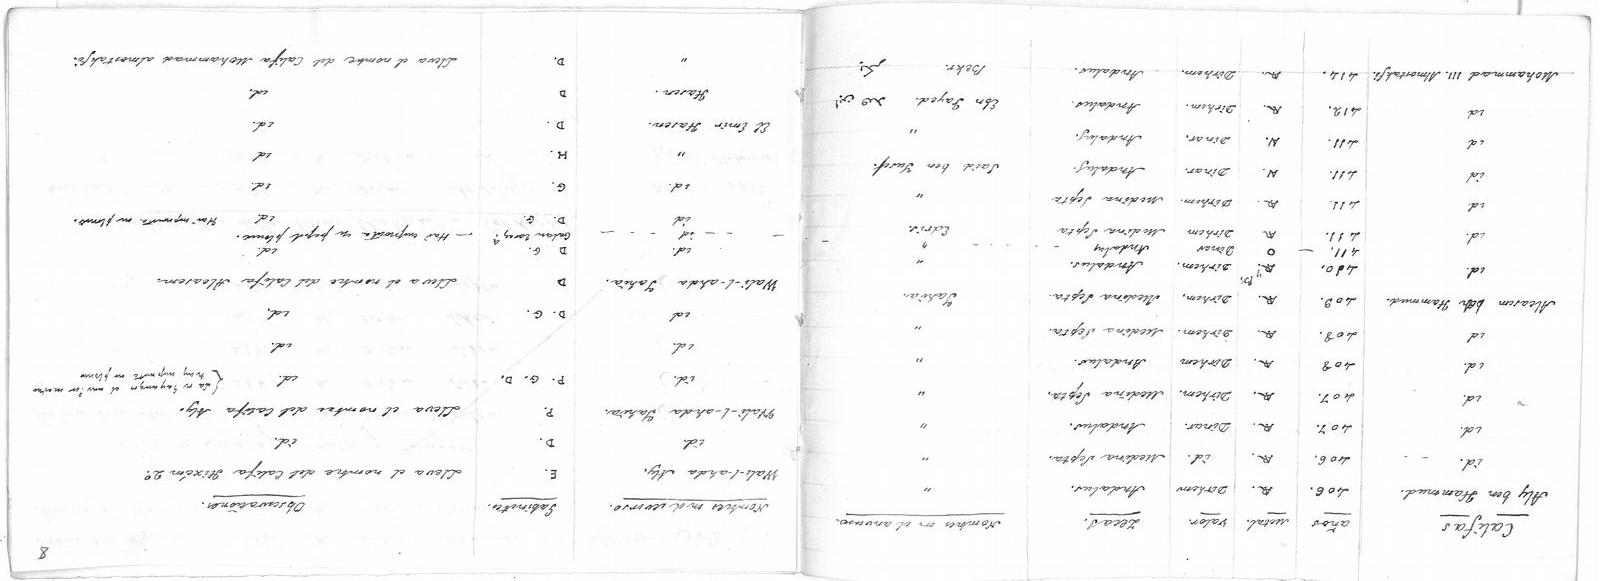 8
Califas años metal. valor Zecas. Nombre en el anverso. Nombres en el reverso. Gabinete. Observaciones.
Aly ben Hammud. 406. R. Dirhem Andalus. " Wali-l-ahda Aly. E. Lleva el nombre del Califa Hixém 2º
id. 406. R. id. Medina Septa. " id. D. id.
id. 407. R. Dinar. Andalus. " Wali-l-ahda Yahia. P. Lleva el nombre del Califa Aly.
id. 407. R. Dirhem. Medina Septa. " id. P. G. D. id.
id. 408 R. Dirhem Andalus. " id. id.
id 408. R. Dirhem. Medina Septa. " id D. G. id.
Alcasem ben Hammud. 409. R. Dirhem. Medina Septa. Yahia. Wali-l-ahda Yahia. D Lleva el nombre del Califa Alcasem
id. 410. R. Dirhem. Andalus. " id. D G. id.
411. O Dinar Andalus " id
id. 411. R Dirhem Medina Septa Edris. id D. G. id
id 411 R. Dirhem. Medina Septa " id. G. id
id 411. H. Dinar. Andalus. Said ben Yusef. " H. id
id 411. H. Dinar. Andalus. " El Emir Hasen. D. id.
id 412. R Dirhem. Andalus. Ebn Sayed. Hasen. D id.
Mohammad III. Almostakfi. 414. R. Dirhem. Andalus. Bekr. " D. Lleva el nombre del Califa Mohammad almostakfi.